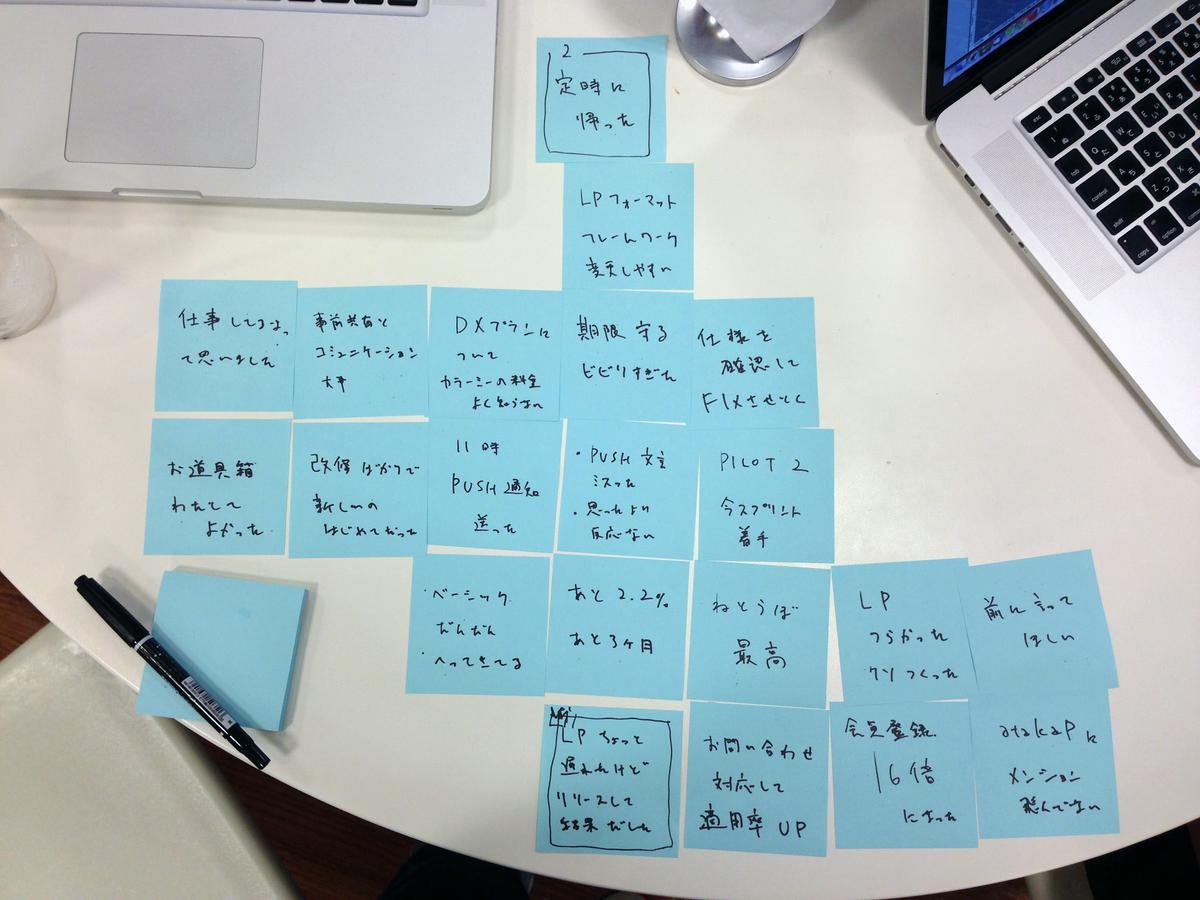 2
定時に
帰った
LPフォーマット
フレームワーク
変更しやすい
仕事してるなっ
て思いました
事前共有と
コミュニケーション
大事
DXプランに
ついて
カラーミーの料金
よく知らない
期限守る
ビビリすぎた
仕様を
確認して
FIXさせとく
お道具箱
わたせて
よかった
改修ばかりで
新しいの
はじめてだった
11時
PUSH通知
送った
・PUSH文言
ミスった
・思ったより
反応ない
PILOT 2
今スプリント
着手
・ベーシック
だんだん
・へってきてる
あと2.2%
あと3ヶ月
ねとらぼ
最高
LP
つらかった
クソつくった
前に言って
ほしい
LPちょっと
遅れたけど
リリースして
結果だした
お問い合わせ
対応して
適用率UP
会員登録
16倍
になった
atakaPに
メンション
飛んでない
esc
tab
control
shift
caps
option